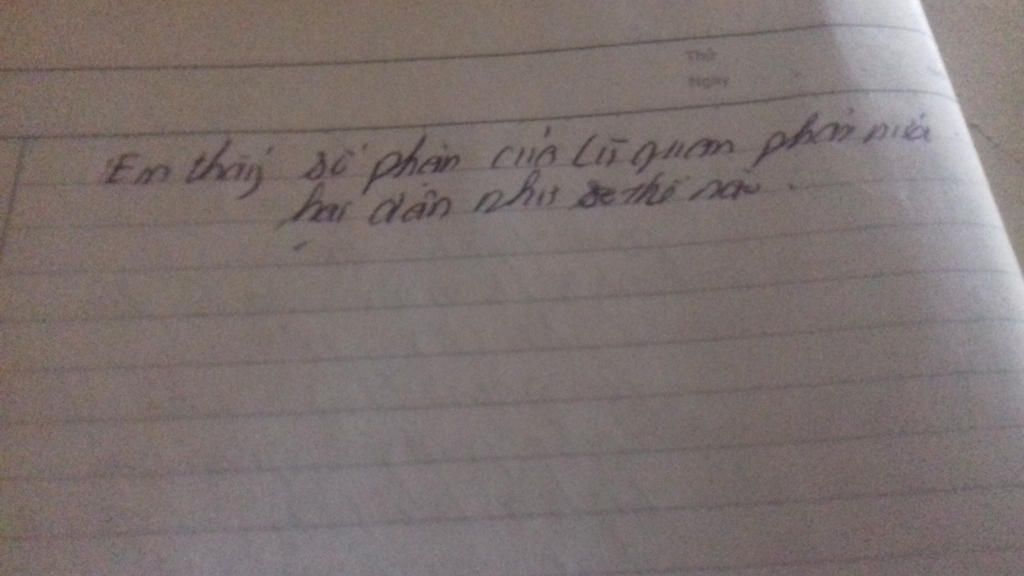 Thứ
Ngày
Em thấy số phận của lũ quan phản nước
hại dân như thế nào.